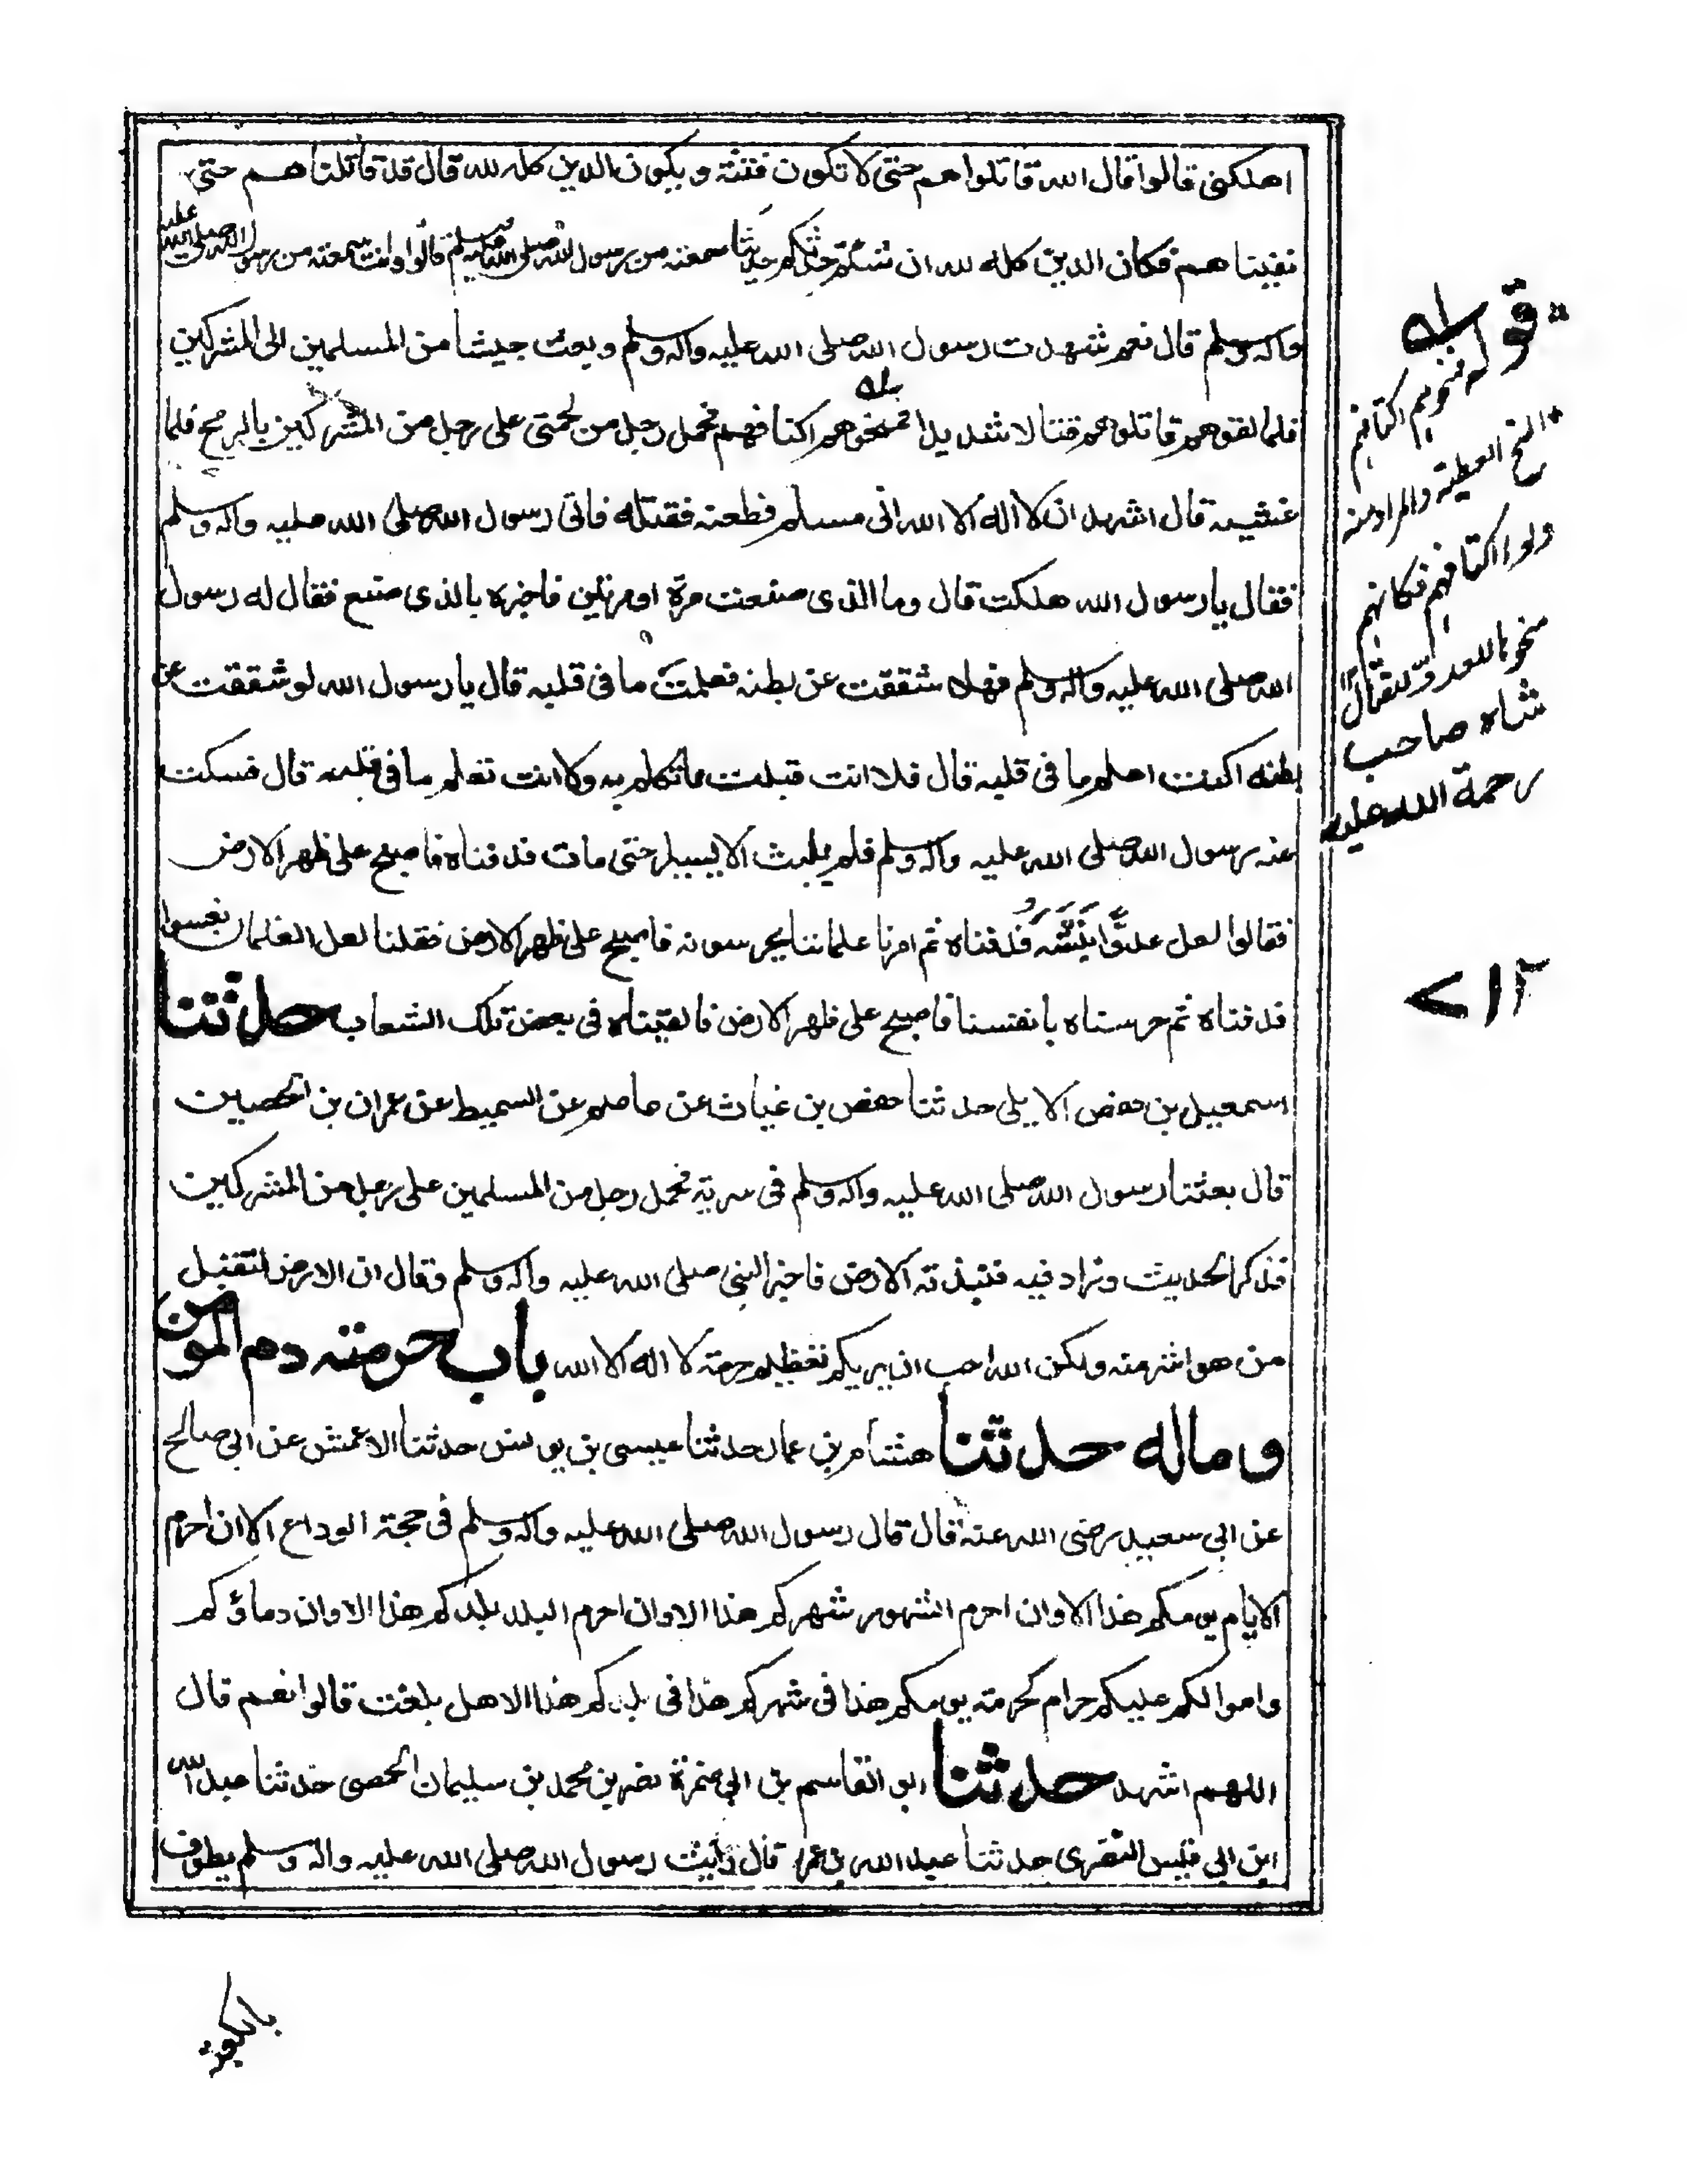 اهلكنى قالوا قال الله قاتلوا هم حتى لا تكون فتنة و يكون الدين كله لله قال قد قاتلنا هم حتى
نفينا هم فكان الدين كله لله ان شئتم حدثتكم حديثا سمعته من رسول الله صلى الله عليه وسلم قالوا وانت سمعته من رسول الله صلى الله عليه
واله وسلم قال نعم شهدت رسول الله صلى الله عليه واله وسلم وبعث جيشا من المسلمين الى المشركين
فلما لقوهم قاتلوهم قتالا شديدا فمنحوهم اكتافهم فحمل رجل من لحمتى على رجل من المشركين بالرمح فلما
غشيه قال اشهد ان لا اله الا الله انى مسلم فطعنه فقتله فاتى رسول الله صلى الله عليه واله وسلم
فقال يا رسول الله هلكت قال وما الذى صنعت مرة او مرتين فاخبره بالذى صنع فقال له رسول
الله صلى الله عليه واله وسلم فهلا شققت عن بطنه فعلمت ما فى قلبه قال يا رسول الله لو شققت عن
بطنه اكنت اعلم ما فى قلبه قال فلا انت قبلت ما تكلم به ولا انت تعلم ما فى قلبه قال فسكت
عنه رسول الله صلى الله عليه واله وسلم فلم يلبث الا يسيرا حتى مات فدفناه فاصبح على ظهر الارض
فقالوا لعل عدوا ينبشه فدفناه ثم امرنا غلماننا يحرسونه فاصبح على ظهر الارض فقلنا لعل الغلمان نعسوا
فدفناه ثم حرسناه بانفسنا فاصبح على ظهر الارض فالقيناه فى بعض تلك الشعاب حدثنا
اسمعيل بن حفص الايلى حدثنا حفص بن غياث عن عاصم عن السميط عن عمران بن الحصين
قال بعثنا رسول الله صلى الله عليه واله وسلم فى سرية فحمل رجل من المسلمين على رجل من المشركين
فذكر الحديث وزاد فيه فنبذته الارض فاخبر النبى صلى الله عليه واله وسلم فقال ان الارض لتقبل
من هو اشر منه ولكن الله احب ان يريكم تعظيم حرمة لا اله الا الله باب حرمته دم المومن
و ماله حدثنا هشام بن عمار حدثنا عيسى بن يونس حدثنا الاعمش عن ابى صالح
عن ابى سعيد رضى الله عنه قال قال رسول الله صلى الله عليه واله وسلم فى حجة الوداع الا ان احرم
الايام يومكم هذا الا وان احرم الشهور شهركم هذا الا وان احرم البلد بلدكم هذا الا وان دماؤكم
واموالكم عليكم حرام كحرمته يومكم هذا فى شهركم هذا فى بلدكم هذا الا هل بلغت قالوا نعم قال
اللهم اشهد حدثنا ابو القاسم بن ابى ضمرة نصر بن محمد بن سليمان الحمصى حدثنا عبد الله
ابن ابى قيس النصرى حدثنا عبد الله بن عمر قال رايت رسول الله صلى الله عليه واله وسلم يطوف
قوله
فمنحوهم اكتافهم
المنح العطية والمراد منه
ولوا اكتافهم فكانهم
منحوها للعدو للقتال
شاه صاحب
رحمة الله عليه
١٢
بالكعبة